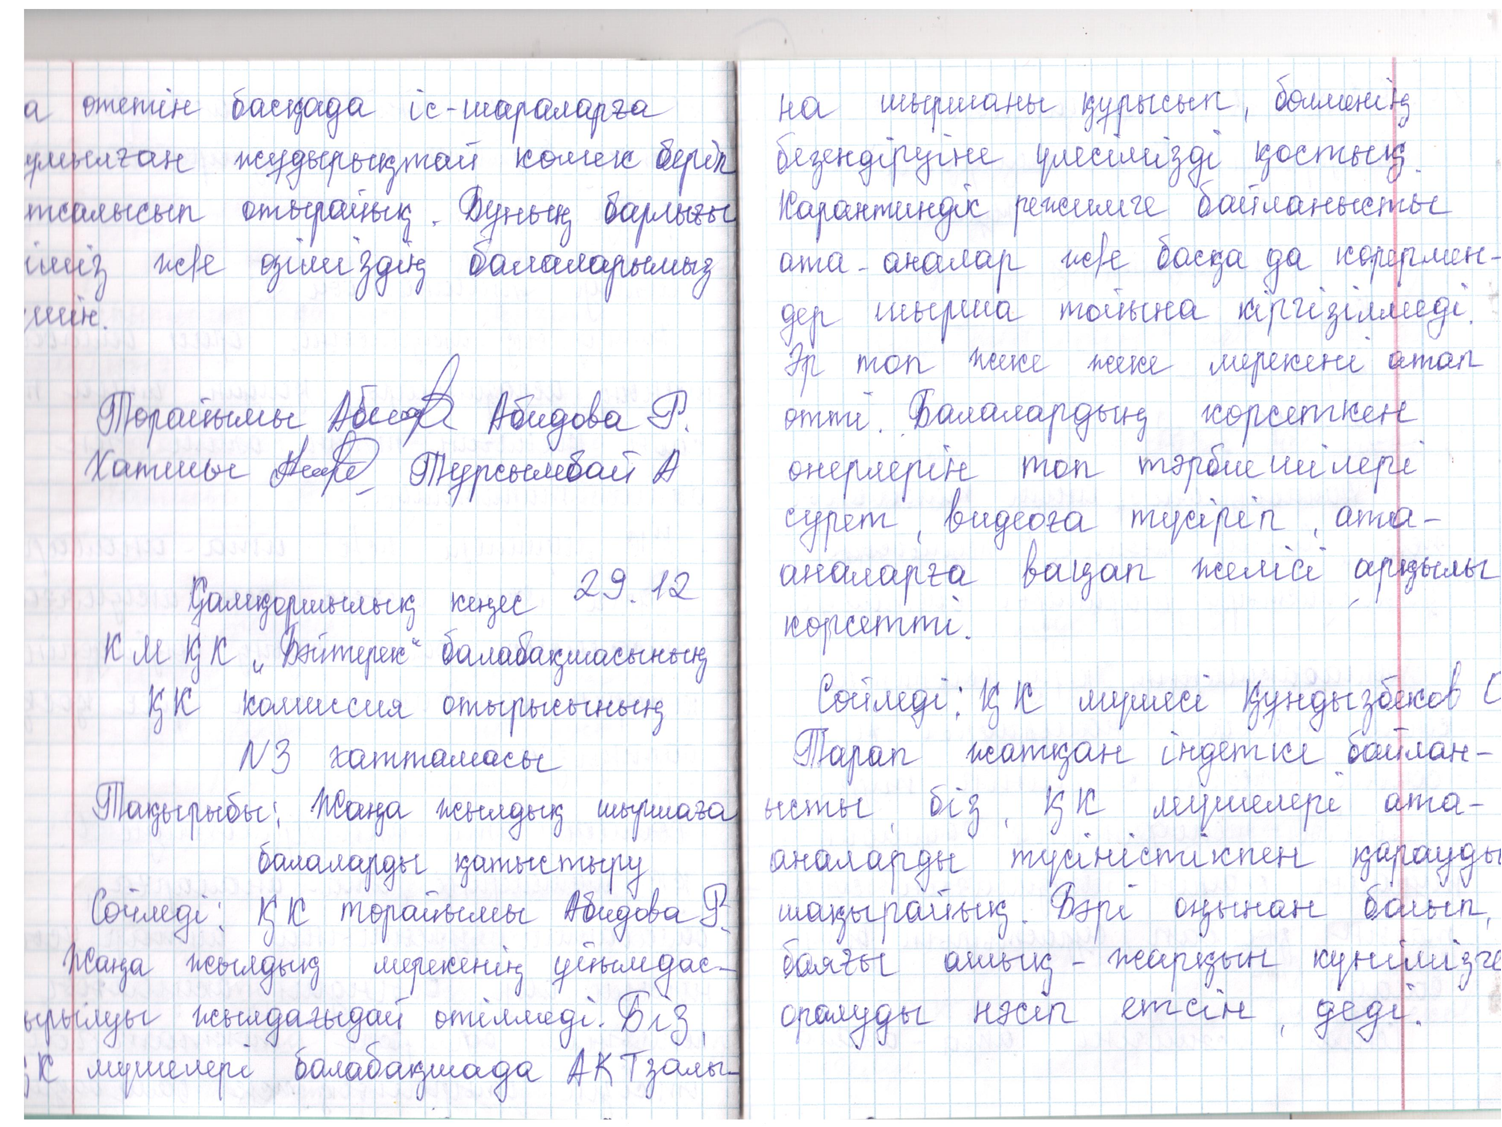 а өтетін басқада іс-шараларға
ұмылған жұдырықтай көмек беріп
тсалысып отырайық. Бұның барлығы
іміз ж/е өзіміздің балаларымыз
шін.
Төрайымы Абидова Р.
Хатшы Тұрсымбай А
Қамқоршылық кеңес 29.12
КМҚК „Бәйтерек“ балабақшасының
ҚК комиссия отырысының
N3 хаттамасы
Тақырыбы: Жаңа жылдық шыршаға
балаларды қатыстыру
Сөйледі: ҚК төрайымы Абидова Р.
Жаңа жылдық мерекенің ұйымдас-
ырылуы жылдағыдай өтілмеді. Біз,
ҚК мүшелері балабақшада АКТзалы-
на шыршаны құрысып, бөлменің
безендіруіне үлесімізді қостық.
Карантиндік режимге байланысты
ата-аналар ж/е басқа да көрермен-
дер шырша тойына кіргізілмеді.
Әр топ жеке жеке мерекені атап
өтті. Балалардың көрсеткен
өнерлерін топ тәрбиешілері
сурет, видеоға түсіріп, ата-
аналарға ватцап желісі арқылы
көрсетті.
Сөйледі: ҚК мүшесі Құндызбеков С
Тарап жатқан індетке байлан-
ысты, біз, ҚК мүшелері ата-
аналарды түсіністікпен қарауды
шақырайық. Бәрі оңынан болып,
баяғы ашық-жарқын күнімізге
оралуды нәсіп етсін, деді.